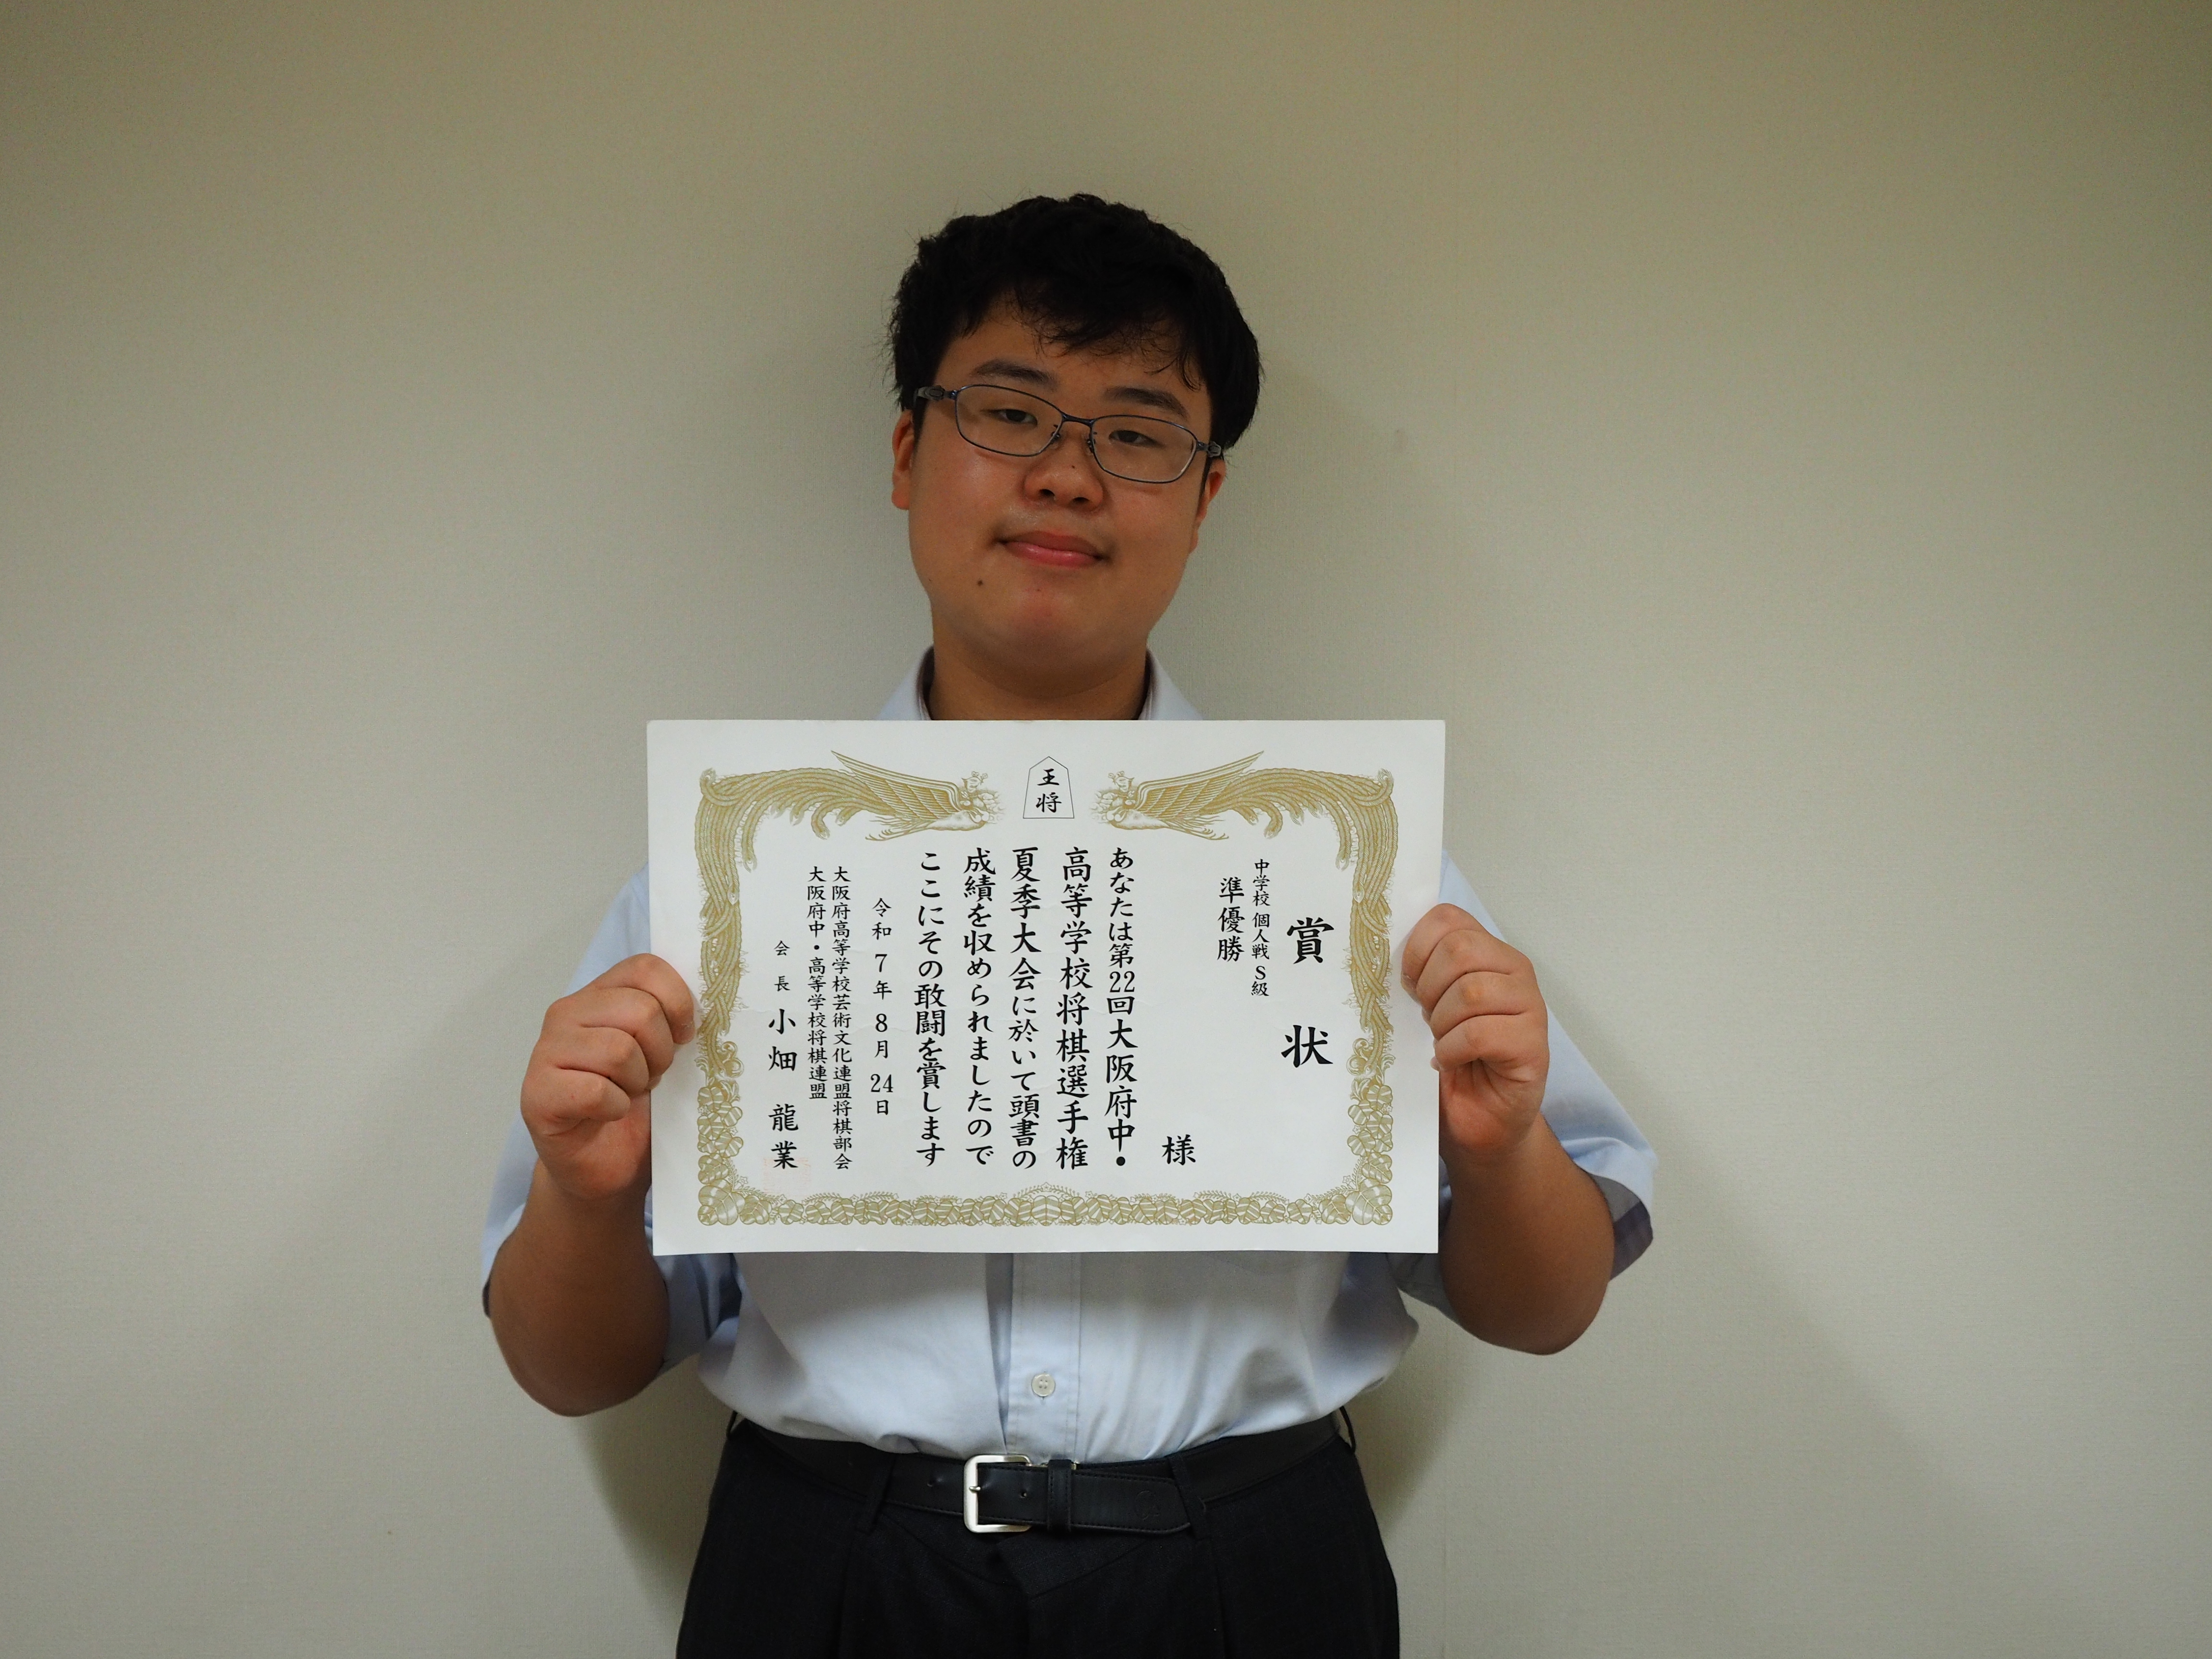 王将
賞状
中学校 個人戦 S級
準優勝
様
あなたは第22回大阪府中・
高等学校将棋選手権
夏季大会に於いて頭書の
成績を収められましたので
ここにその敢闘を賞します
令和7年8月24日
大阪府高等学校芸術文化連盟将棋部会
大阪府中・高等学校将棋連盟
会長 小畑 龍業